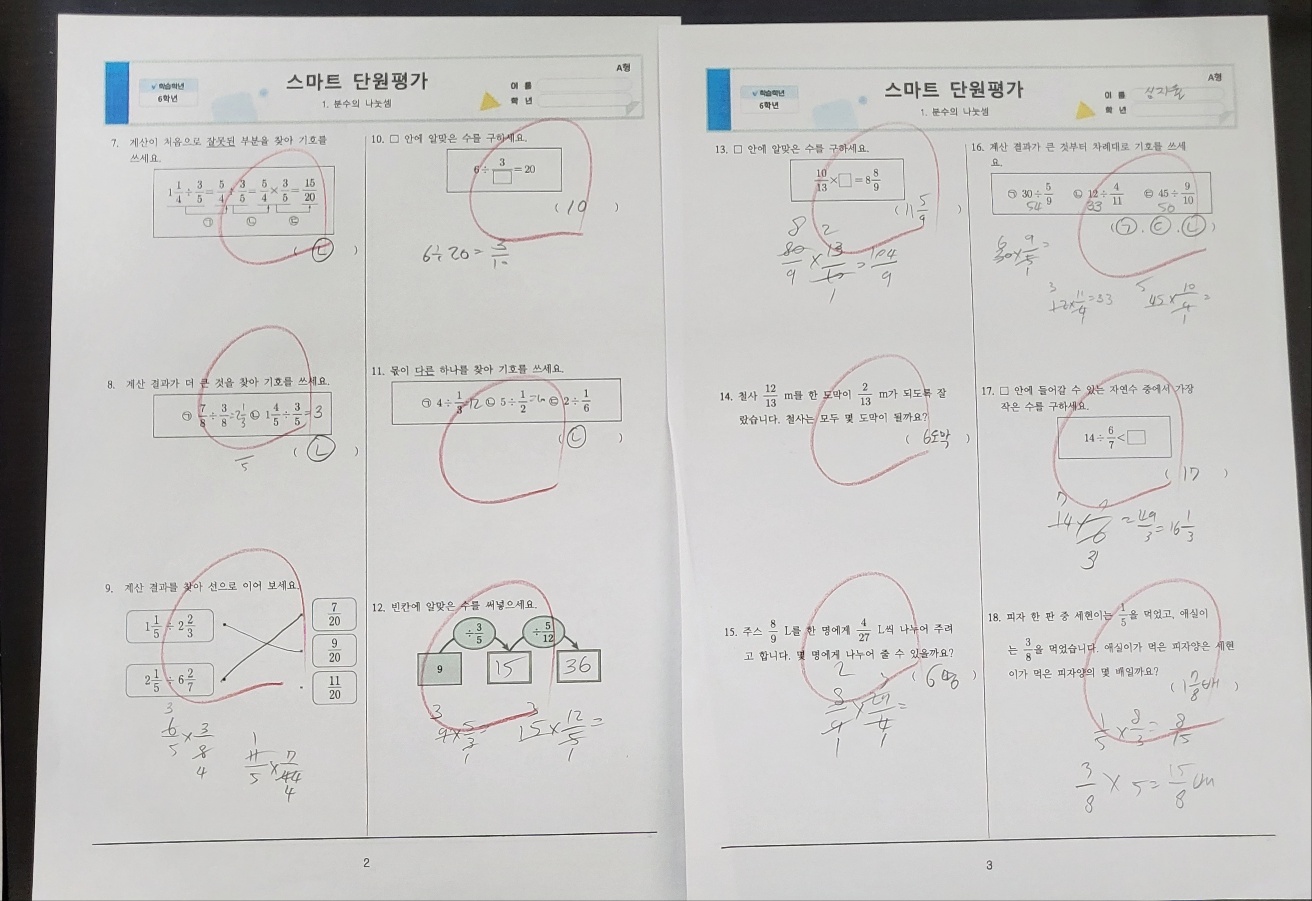 스마트 단원평가
A형
✓학습학년
6학년
1. 분수의 나눗셈
이 름
학 년
7. 계산이 처음으로 잘못된 부분을 찾아 기호를
쓰세요.
1 1/4 ÷ 3/5 = 5/4 ÷ 3/5 = 5/4 × 3/5 = 15/20
㉠ ㉡ ㉢
( ㉡ )
8. 계산 결과가 더 큰 것을 찾아 기호를 쓰세요.
㉠ 7/8 ÷ 3/8 = 2 1/3 ㉡ 1 4/5 ÷ 3/5 = 3
( ㉡ )
5
9. 계산 결과를 찾아 선으로 이어 보세요.
1 1/5 ÷ 2 2/3
7/20
9/20
2 1/5 ÷ 6 2/7
11/20
3
6/5 × 3/8
4
1
11/5 × 7/44
4
10. □ 안에 알맞은 수를 구하세요.
6 ÷ 3/□ = 20
( 10 )
6÷20= 3/10
11. 몫이 다른 하나를 찾아 기호를 쓰세요.
㉠ 4 ÷ 1/3 =12 ㉡ 5 ÷ 1/2 =10 ㉢ 2 ÷ 1/6
( ㉡ )
12. 빈칸에 알맞은 수를 써넣으세요.
÷ 3/5 ÷ 5/12
9 15 36
3 3
9 × 5/3 = 15 × 12/5 =
1 1
2
스마트 단원평가
A형
✓학습학년
6학년
1. 분수의 나눗셈
이 름
학 년
13. □ 안에 알맞은 수를 구하세요.
10/13 × □ = 8 8/9
( 11 5/9 )
8 2
80/9 × 13/10 = 104/9
1
14. 철사 12/13 m를 한 도막이 2/13 m가 되도록 잘
랐습니다. 철사는 모두 몇 도막이 될까요?
( 6도막 )
15. 주스 8/9 L를 한 명에게 4/27 L씩 나누어 주려
고 합니다. 몇 명에게 나누어 줄 수 있을까요?
( 6명 )
2 3
8/9 × 27/4 =
1 1
16. 계산 결과가 큰 것부터 차례대로 기호를 쓰세
요.
㉠ 30 ÷ 5/9 ㉡ 12 ÷ 4/11 ㉢ 45 ÷ 9/10
54 33 50
( ㉠ , ㉢ , ㉡ )
6
30 × 9/5 =
1
3
12 × 11/4 = 33
5
45 × 10/9 =
1
17. □ 안에 들어갈 수 있는 자연수 중에서 가장
작은 수를 구하세요.
14 ÷ 6/7 < □
( 17 )
7
14 × 7/6 = 49/3 = 16 1/3
3
18. 피자 한 판 중 세현이는 1/5을 먹었고, 애실이
는 3/8을 먹었습니다. 애실이가 먹은 피자양은 세현
이가 먹은 피자양의 몇 배일까요?
( 1 7/8 배 )
1/5 × 8/3 = 8/15
3/8 × 5 = 15/8 배
3